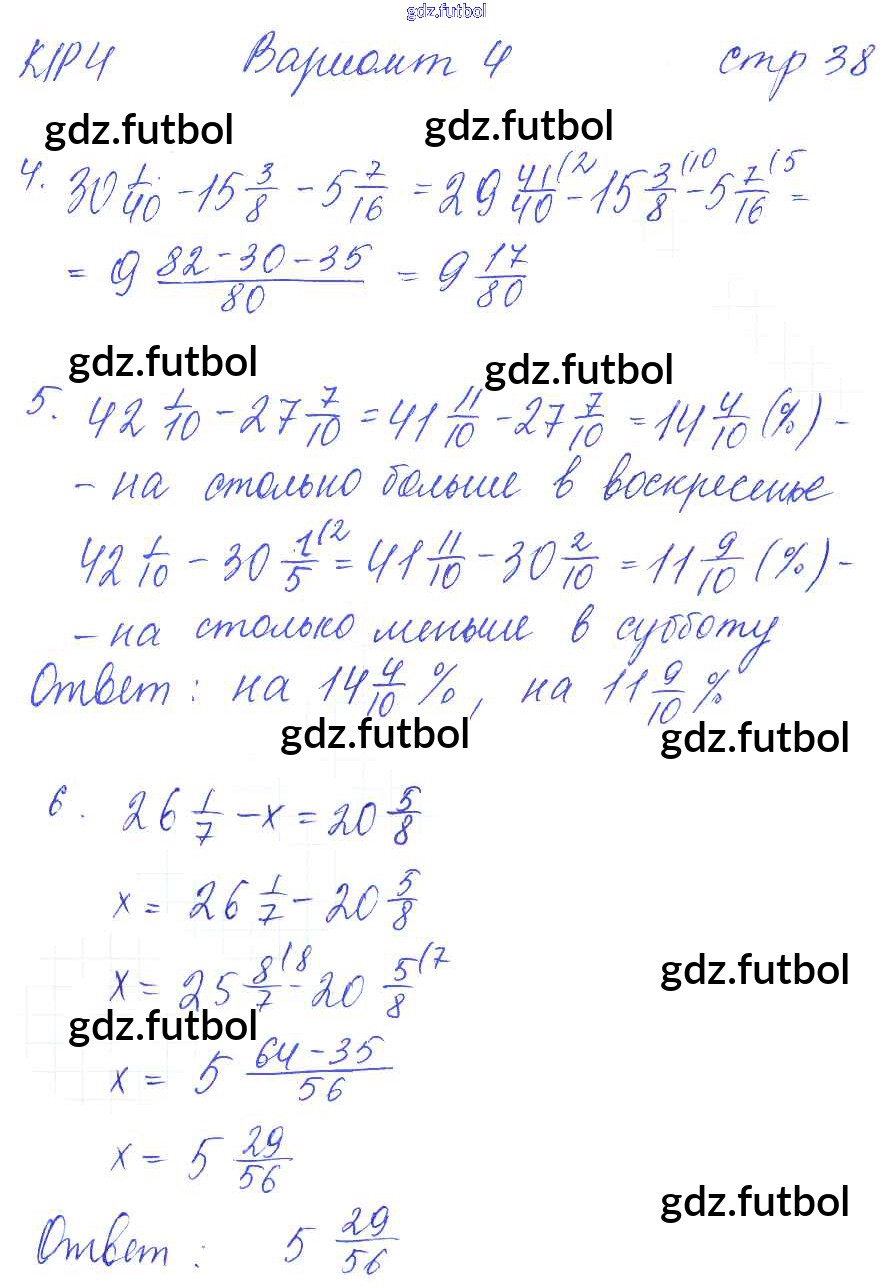 gdz.futbol
К1Р4 Вариант 4 стр 38
gdz.futbol gdz.futbol
4. 30 1/40 - 15 3/8 - 5 7/16 = 29 41/40 (2 - 15 3/8 (10 - 5 7/16 (5 =
= 9 (82 - 30 - 35)/80 = 9 17/80
gdz.futbol gdz.futbol
5. 42 1/10 - 27 7/10 = 41 11/10 - 27 7/10 = 14 4/10 (%) -
- на столько больше в воскресенье
42 1/10 - 30 1/5 (2 = 41 11/10 - 30 2/10 = 11 9/10 (%) -
- на столько меньше в субботу
Ответ: на 14 4/10 %, на 11 9/10 %
gdz.futbol gdz.futbol
6. 26 1/7 - x = 20 5/8
x = 26 1/7 - 20 5/8
x = 25 8/7 (8 - 20 5/8 (7
gdz.futbol
gdz.futbol
x = 5 (64 - 35)/56
x = 5 29/56
gdz.futbol
Ответ: 5 29/56